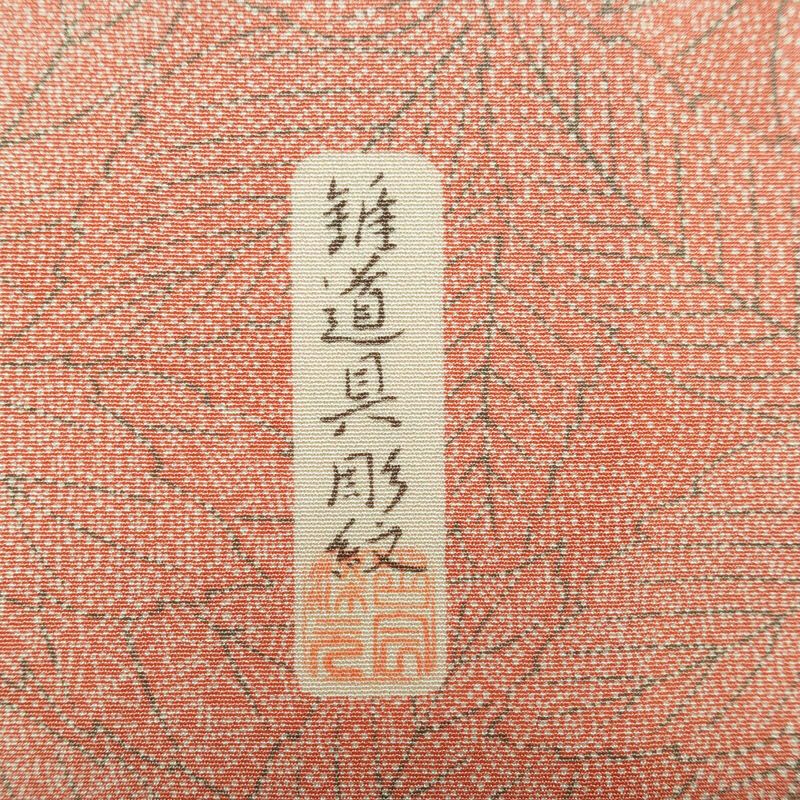 錐道具彫紋